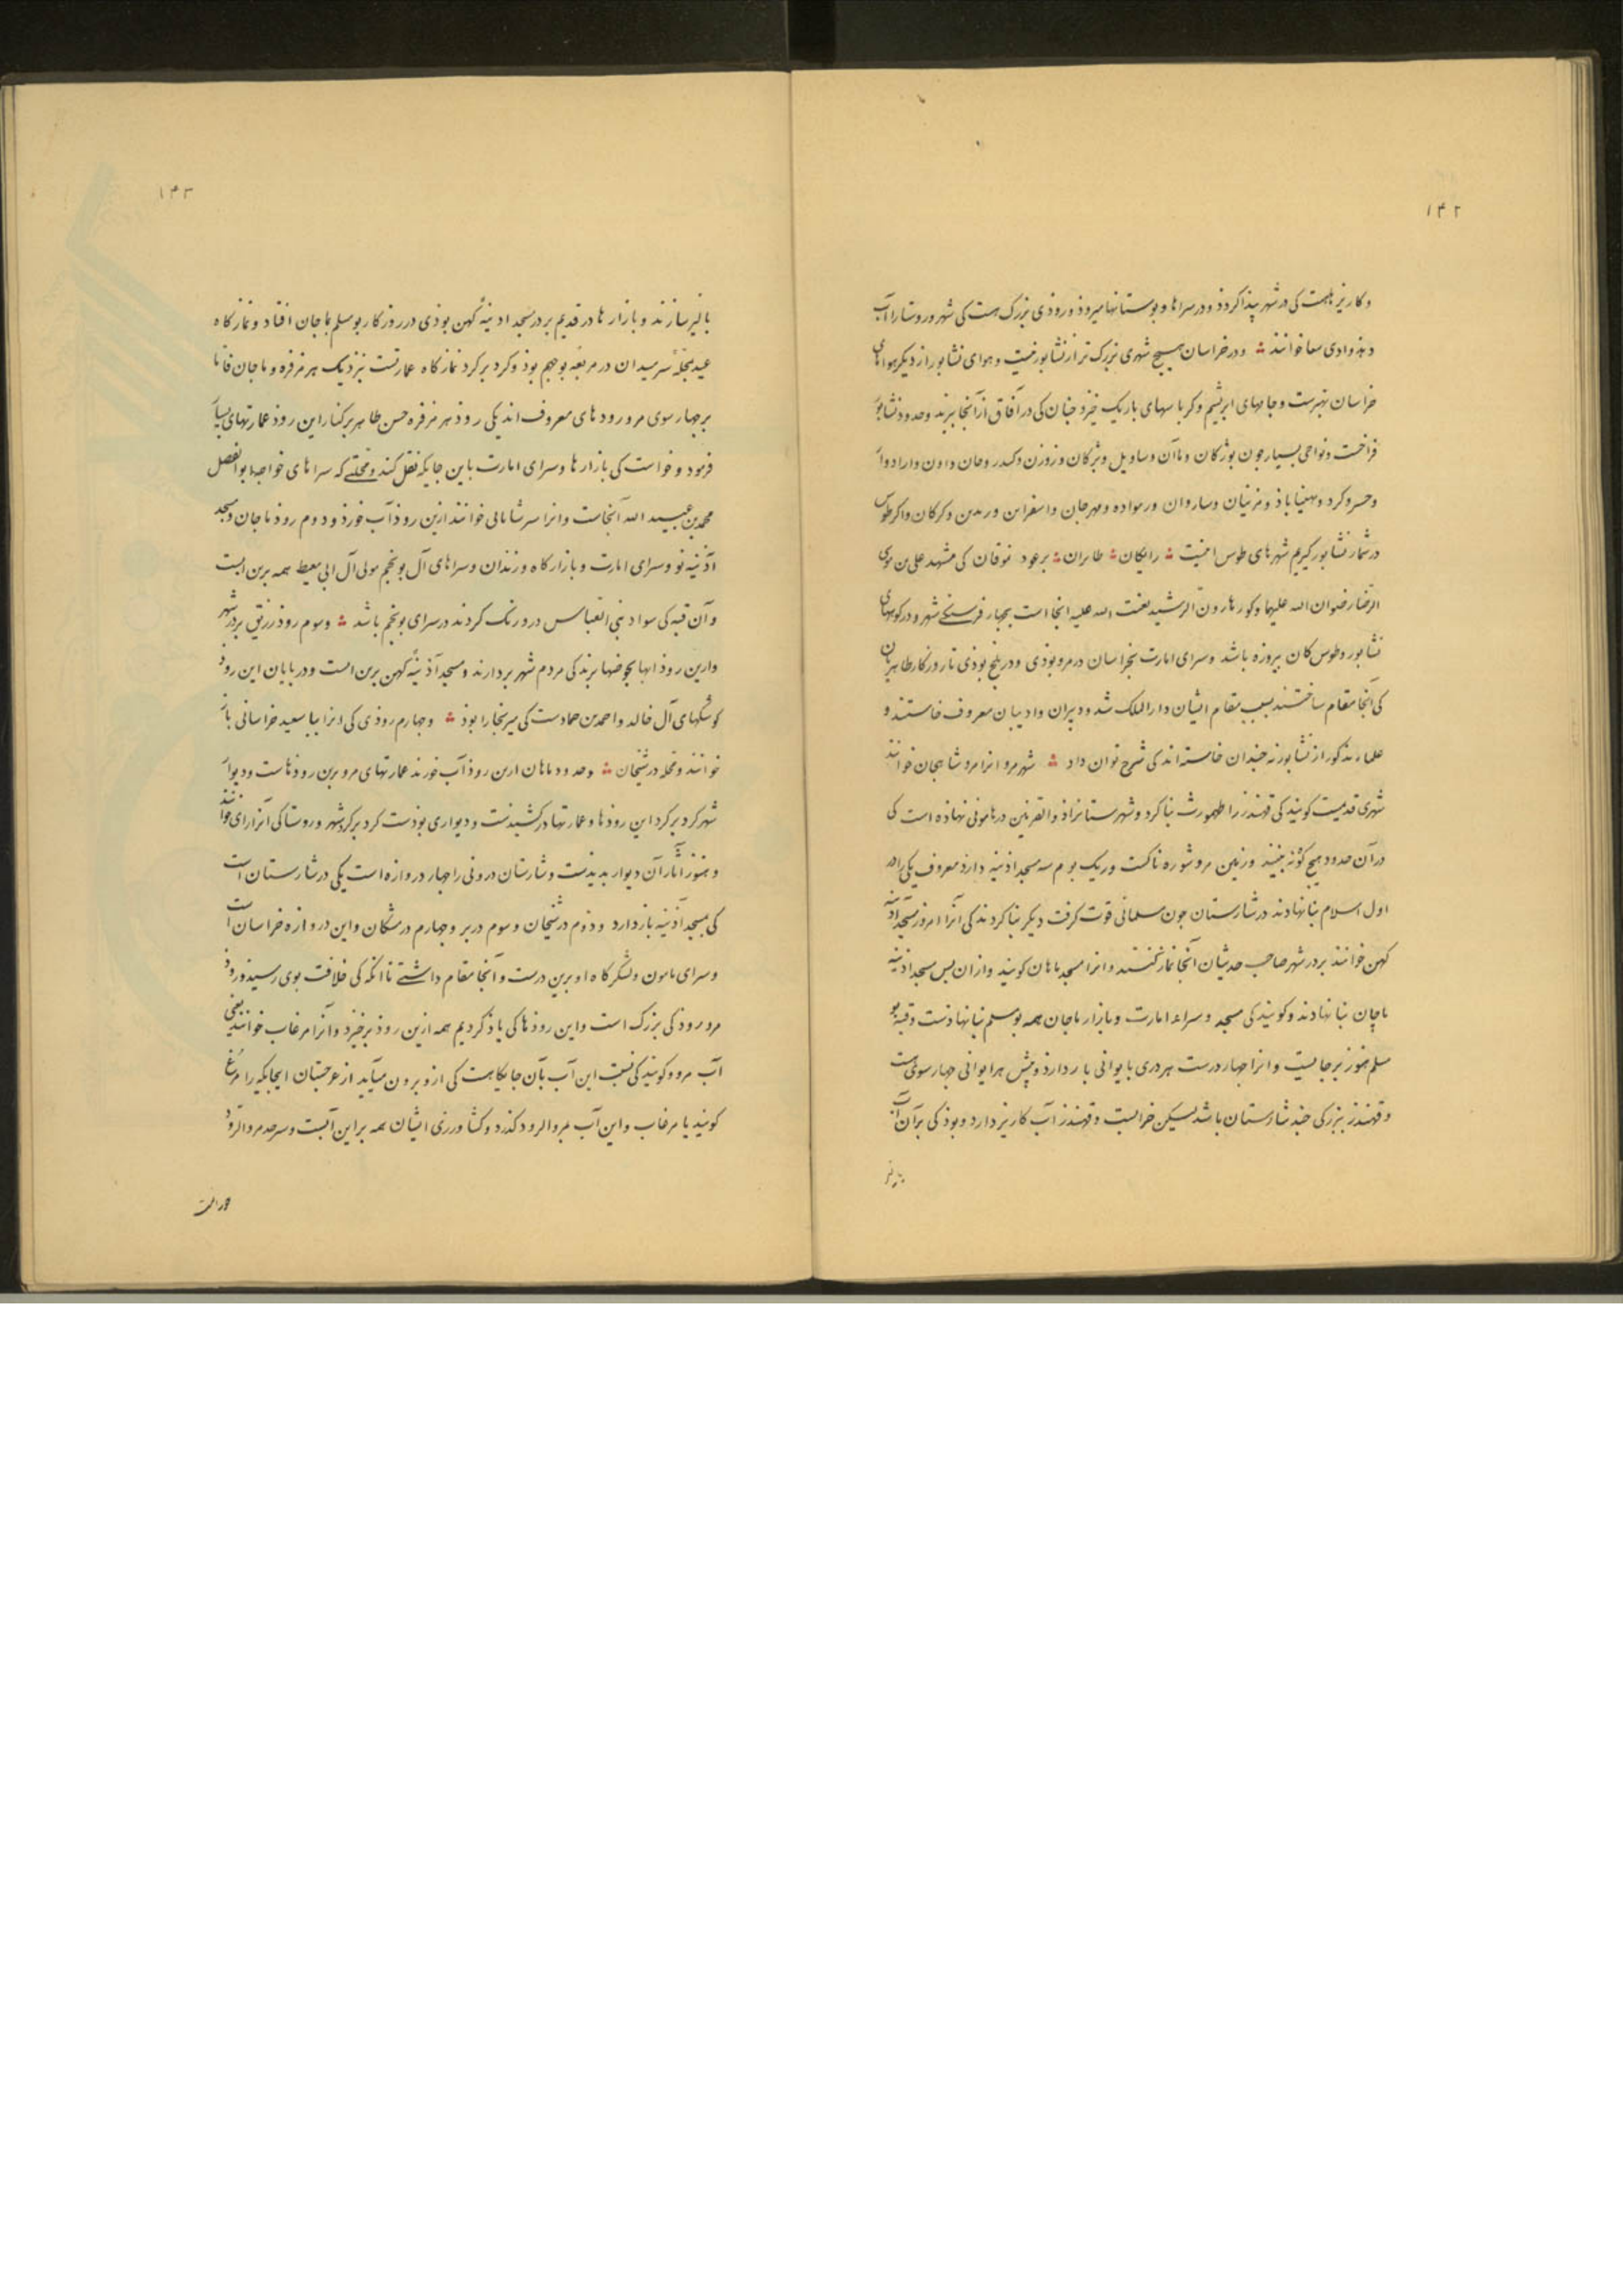 ۱۴۲
و کاریز هست کی در شهر پیدا کردذ و در سراها و بوستانها میروذ و روذی بزرک هست کی شهر و روستا را آب
دهذ وادی سغا خوانند ؞ و در خراسان هیچ شهری بزرک تر از نشابور نیست و هوای نشابور از دیکر هواهای
خراسان بهترست و جامهای ابریشم و کرباسهای باریک خیزد چنان کی در آفاق از آنجا برند و حدود نشابور
فراخست و نواحی بسیار چون بوزکان و مالن و و زوزن و و
و خسروکرد و بهمناباذ و مزینان و ساروان و و مهرجان و اسفراین و و کرکان و اکر طوس
در شمار نشابور کیریم شهرهای طوس اینست ؞ رایکان ؞ طابران ؞ نوقان کی مشهد علی بن موسی
الرضا رضوان الله علیهما و کور هارون الرشید لعنت الله علیه انجا است بچهار فرسنکی شهر و در کوههای
نشابور و طوس کان پیروزه باشد و سرای امارت بخراسان در مرو بوذی و در بلخ بوذی تا روزکار طاهریان
کی آنجا مقام ساختند بسبب مقام ایشان دار الملک شد و دبیران و ادیبان معروف خاستند و
علماء مذکور از نشابور نه چندان خاسته اند کی شرح توان داد ؞ شهر مرو انرا مرو شاهجان خوانند
شهری قدیمست کویند کی قهندز را طهمورث بنا کرد و شهرستانرا ذوالقرنین در هامونی نهاذه است کی
در آن حدود هیچ کوه نبینند و زمین مرو شوره ناکست و ریک بوم سه مسجد اذینه دارذ معروف یکی را در
اول اسلام بنا نهادند در شارستان چون مسلمانی قوت کرفت دیکر بنا کردند کی آنرا امروز مسجد آدینه
کهن خوانند بر در شهر صاحب حدیثان آنجا نماز کنند و انرا مسجد ماهان کویند و ازان پس مسجد اذینه
ماجان بنا نهادند و کویند کی مسجد و سراء امارت و بازار ماجان همه بومسلم بنا نهادست و قبه بو
مسلم هنوز بر جایست و انرا چهار درست هر دری با یوانی باز دارذ و پیش هر ایوانی چهار سوئی است
و قهندز ببزرکی چند شارستان باشد لیکن خرابست و قهندز آب کاریز دارد و بوذ کی بر آن آب
۱۴۳
پالیز سازند و بازارها در قدیم بر در مسجد اذینهٔ کهن بوذی در روزکار بومسلم با ماجان افتاد و نمازکاه
عید بمحلهٔ سر میدان در مربعه بوجهم بوذ و کرد بر کرد نمازکاه عمارتست نزدیک هرمزفره و ماجان
بر چهار سوی مرو رودهای معروف اند یکی روذ هرمزفره حسن طاهر بر کنار این روذ عمارتهای بسیار
فرمود و خواست کی بازارها و سرای امارت باین جایکه نقل کند و محلتی که سراهای خواجه ابوالفضل
محمد بن عبید الله آنجاست و انرا سرشابائی خوانند ازین روذ آب خورذ و دوم روذ ماجان و مسجد
آذینه نو و سرای امارت و بازارکاه و زندان و سراهای آل بونجم مولی آل ابی معیط همه برین است
و آن قبه کی سواد بنی العباس درو رنک کردند در سرای بونجم باشد ؞ و سوم روذ رزیق بر در شهر
و ازین روذ ابها بحوضها برند کی مردم شهر بردارند و مسجد آذینهٔ کهن برین است و در پایان این روذ
کوشکهای آل خالد و احمد بن حمادست کی میر بخارا بوذ ؞ و چهارم روذی کی انرا بابا سعید خراسانی باز
خوانند و محله در شنجان ؞ و حدود ماهان ازین روذ آب خورند عمارتهای مرو برین روذهاست و دیوار
شهر کرد بر کرد این روذها و عمارتها در کشیدنست و دیواری بوذست کرد بر کرد شهر و روستا کی آنرا رای خوانند
و هنوز آثار آن دیوار بدیدست و شارستان درونی را چهار دروازه است یکی در شارستان است
کی بمسجد آذینه باز دارد و دوم در شنجان و سوم در بر و چهارم در مشکان و این دروازه خراسان است
و سرای مامون و لشکرکاه او برین درست و آنجا مقام داشتی تا انکه کی خلافت بوی رسید و روذ
مرو روذکی بزرک است و این روذها کی یاذ کردیم همه ازین روذ برخیزد و آنرا مرغاب خوانند یعنی
آب مرو و کویند کی نسبت این آب بآن جایکاهست کی ازو برون میآید از غرجستان اینجایکه را مُرغ
کویند یا مرغاب و این آب بمرو الرود کذرد و کشاورزی ایشان همه بر این آبست و سر حد مرو الروذ